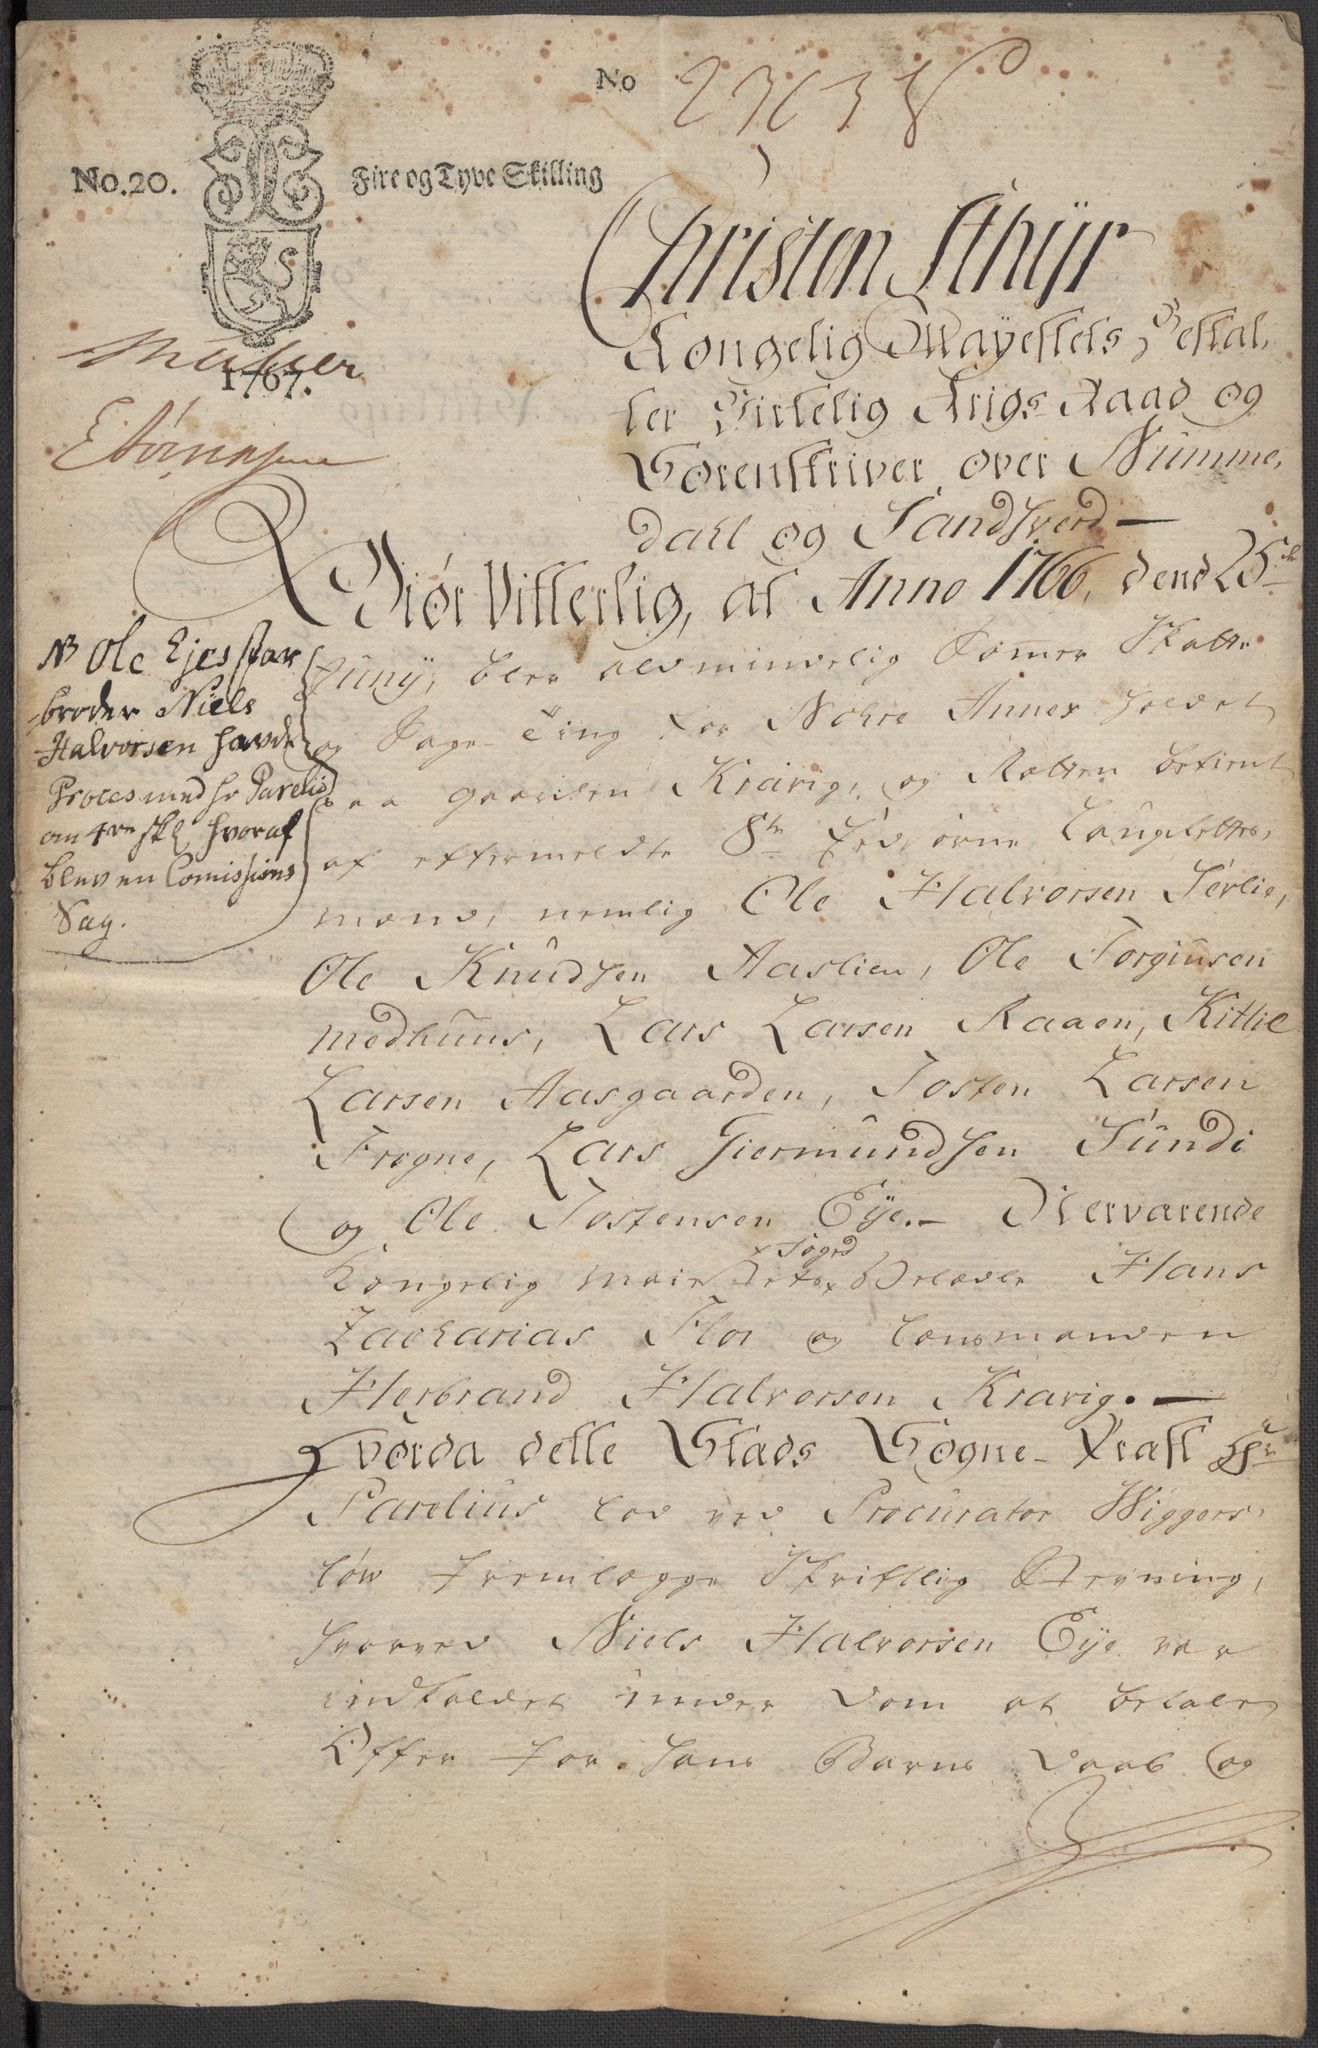 No 2363
No.20. Fire og Tyve Skilling
1767.
Christen Sthyr
Kongelig Mayestets Bestal,
ter Virkelig Krigs Raad og
Sorenskriver over Numme,
dahl og Sandsverd —
Giør Vitterlig, at Anno 1766, dend 25de
Junÿ, blev almindelig Sommer Skatte
og Sage-Ting for Nohre Annex holdet
paa gaarden Kravig, og Retten betient
af eftermeldte 8te Edsvorne Laugrettes,
mænd, nemlig Ole Halvorsen Serlie,
Ole Knudsen Aaslien, Ole Torgiusen
medhuus, Lars Larsen Raaen, Kittil
Larsen Aasgaarden, Josten Larsen
Frogne, Lars Giermundsen Sundi
og Ole Jostensen Eÿe.– Nærværende
Foged
Kongelig Maiestets Belævde Hans
Zacharias Flor og Lensmanden
Herbrand Halvorsen Kravig. —
Hvorda dette Stads Sogne-Præst Hr
Parelius lod ved Procurator Wiggers,
løw fremlægge Skriftlig Stevning,
hvorved Niels Halvorsen Eÿe var
indkaldet under Dom at betale
Offer for hans Barns Daab og
NB Ole Ejes Far
broder Niels
Halvorsen havde
Proces med hr Parelius
om 4re skl hvoraf
blev en Comissions
Sag.